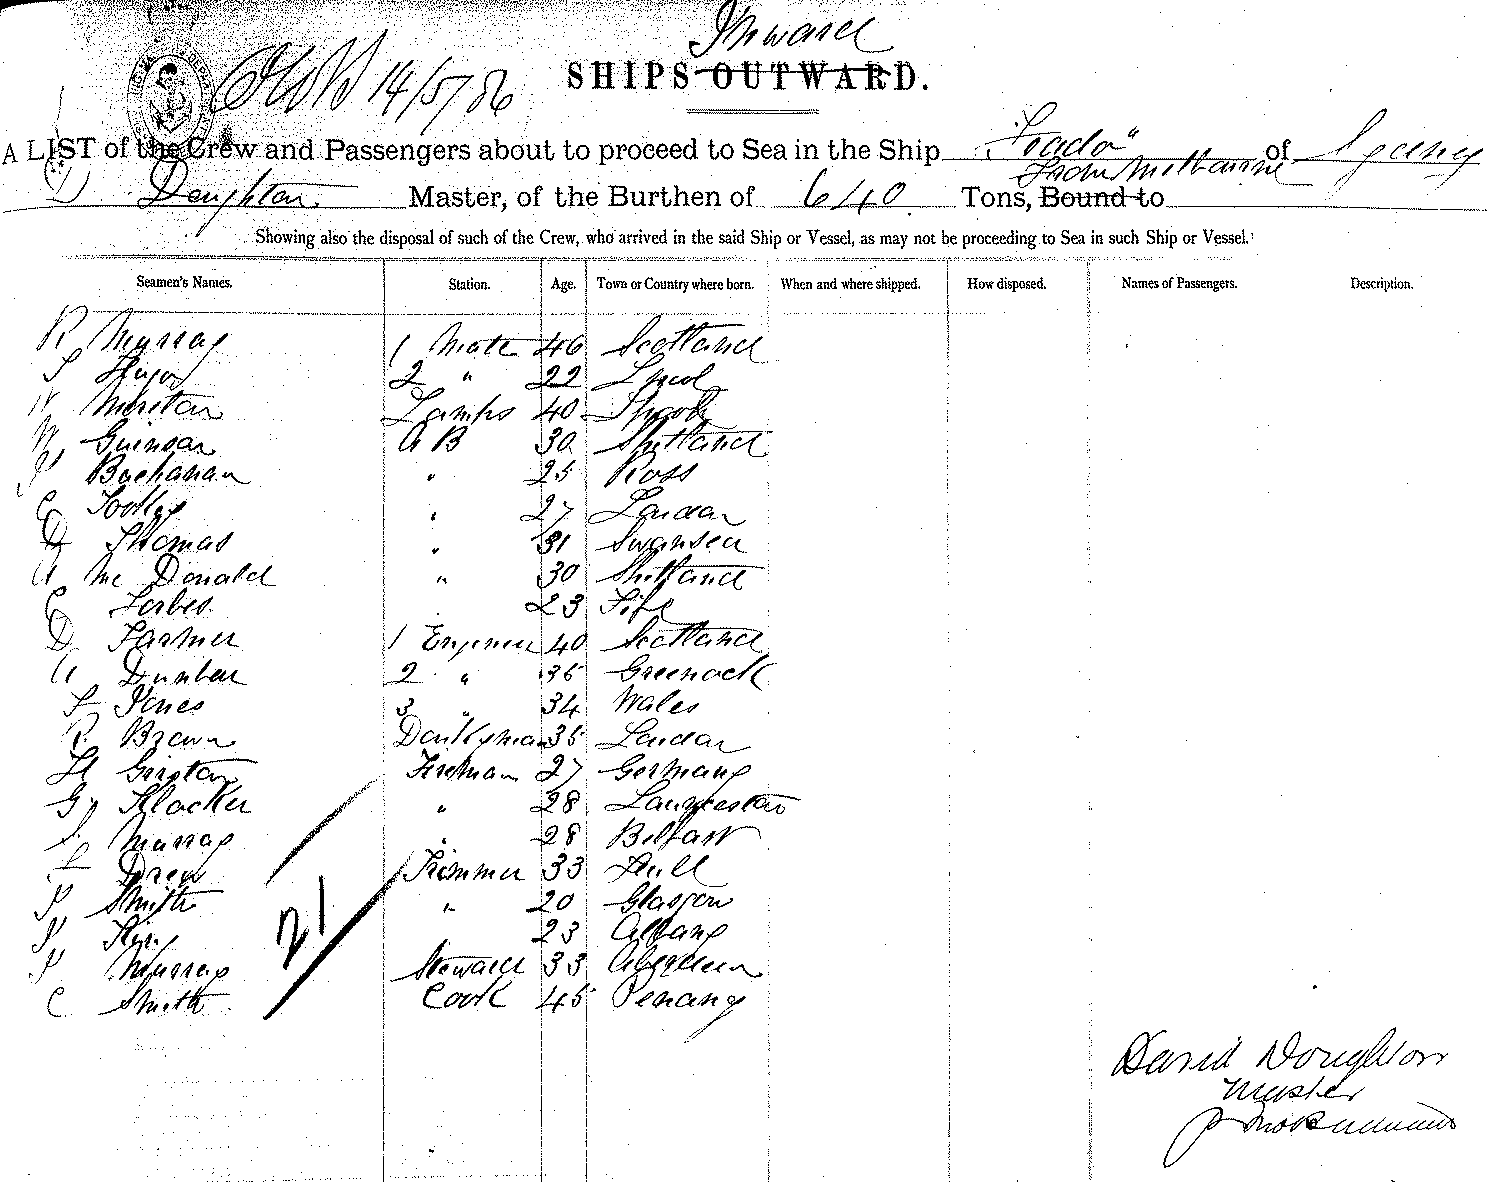 Inward
14/5/86
SHIPS OUTWARD.
A LIST of the Crew and Passengers about to proceed to Sea in the Ship of Sydney
D Doughton Master, of the Burthen of 640 Tons, Bound to from Melbourne
Showing also the disposal of such of the Crew, who arrived in the said Ship or Vessel, as may not be proceeding to Sea in such Ship or Vessel.
Seamen's Names. Station. Age. Town or Country where born. When and where shipped. How disposed. Names of Passengers. Description.
R Murray 1 Mate 46 Scotland
2 " 22 L'pool
Lamps 40
Shetland A B 30
Buchanan " 25 Ross
" 27 London
D Thomas " 31 Swansea
A Mc Donald " 30 Shetland
Forbes 23 Fife
D Farmer 1 Engineer 40 Scotland
A Dunbar 2 " 35 Greenock
Jones 3 " 34 Wales
R Brown Donkyman 35 London
H Fireman 27 Germany
" 28 Launceston
Murray " 28 Belfast
Drew Trimmer 33 Hull
Smith " 20 Glasgow
King 23 Albany
Murray Steward 33 Aberdeen
C Smith Cook 45 Penang
21
David Doughton
Master